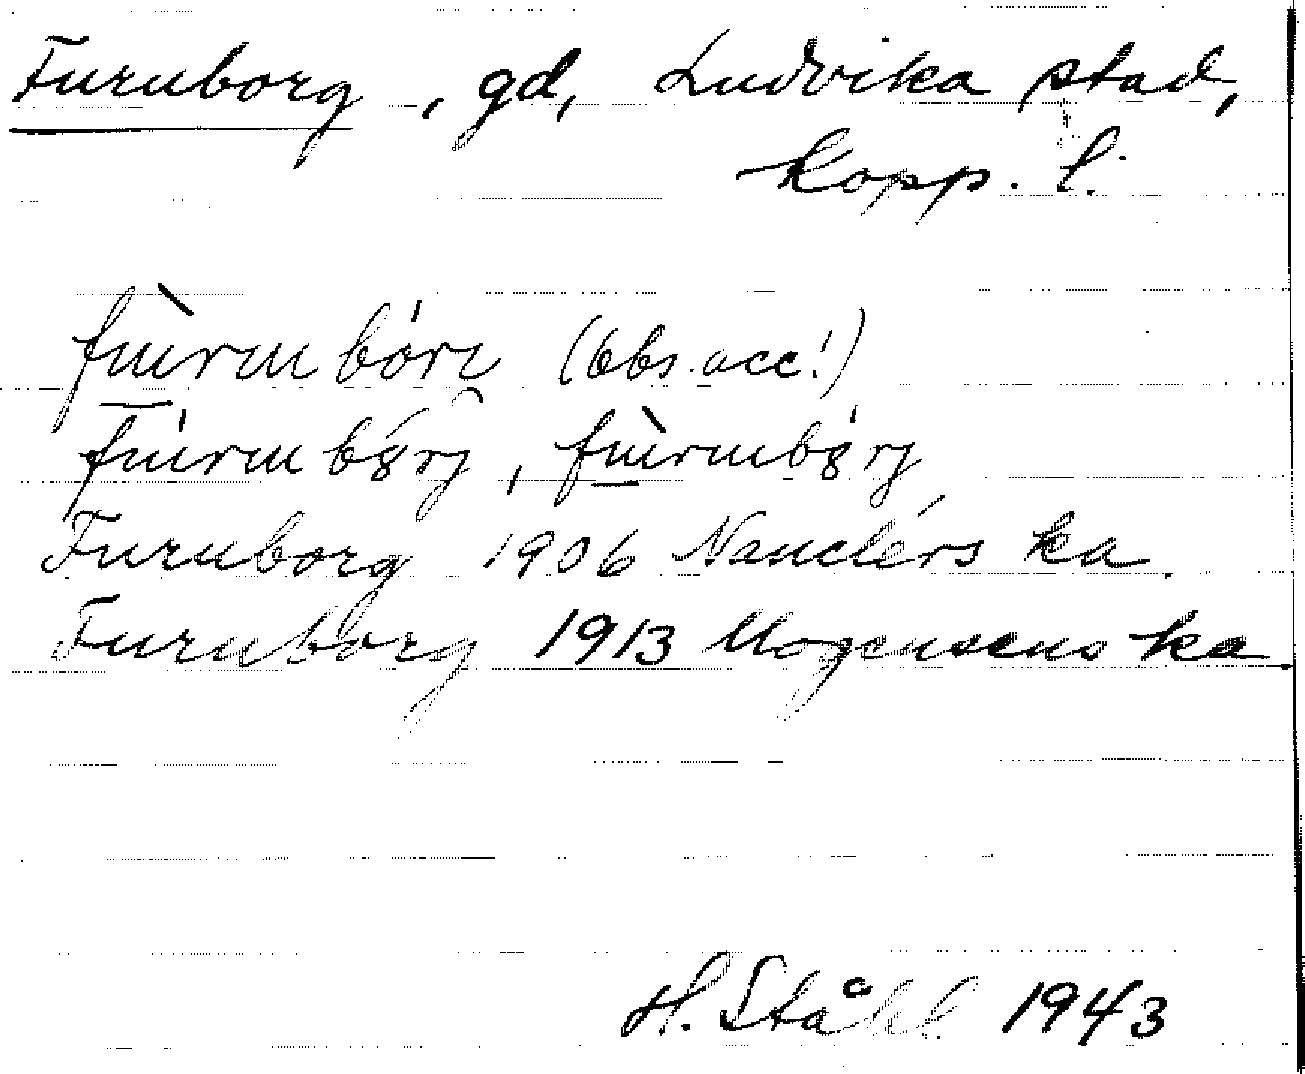 Furuborg, gd, Ludvika stad,
Kopp. l.
(obs. acc!)
Furuborg 1906 Nauclérs ka.
Furuborg 1913 Mogensens ka
H. Ståhl 1943